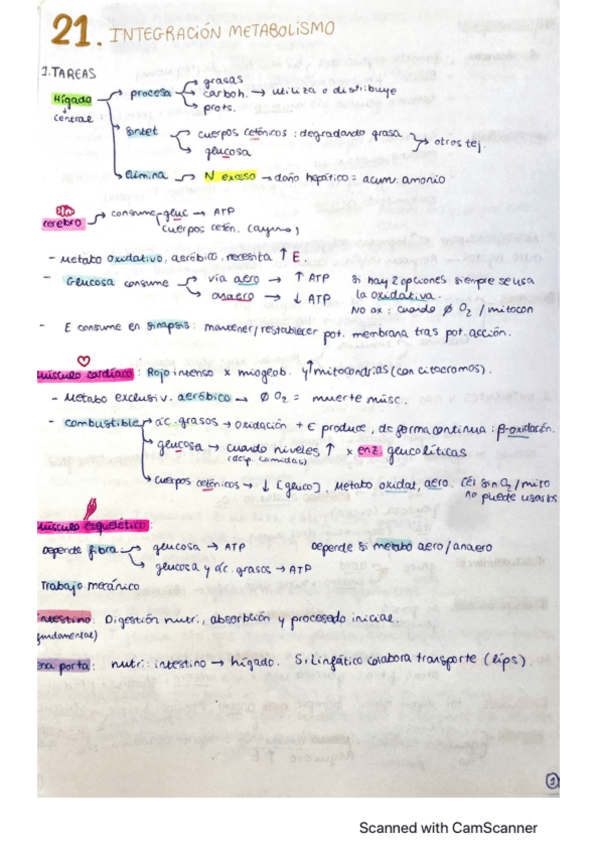 21. INTEGRACIÓN METABOLISMO
1. TAREAS
Hígado → procesa → grasas
carboh. → utiliza o distribuye
prots.
↓
central
sintet → cuerpos cetónicos : degradando grasa → otros tej.
glucosa
Elimina → N exceso → daño hepático = acum. amonio
cerebro → consume gluc → ATP
cuerpos cetón. (ayuno)
- Metabo oxidativo, aeróbico, necesita ↑ E.
- Glucosa consume → vía aero → ↑ ATP si hay 2 opciones siempre se usa
anaero → ↓ ATP la oxidativa.
NO ox : cuando Ø O2 / mitocon
- E consume en sinapsis : mantener/restablecer pot. membrana tras pot. acción.
músculo cardíaco : Rojo intenso x miogeob. y ↑ mitocondrias (con citocromos).
- Metabo exclusiv. aeróbico → Ø O2 = muerte músc.
- combustible → ác. grasos → oxidación + E produce, de forma continua : β-oxidación.
glucosa → cuando niveles ↑ x enz glucolíticas
(desp. comidas)
cuerpos cetónicos → ↓ [gluco]. Metabo oxidat, aero. Cél sin O2 / mito
no puede usarlos
músculo esquelético :
Depende fibra → glucosa → ATP Depende si metabo aero/anaero
glucosa y ác. grasos → ATP
Trabajo mecánico
intestino : Digestión nutri, absorbción y procesado inicial.
fundamental)
na porta : nutri : intestino → hígado. S. Linfático colabora transporte (lips).
1
Scanned with CamScanner